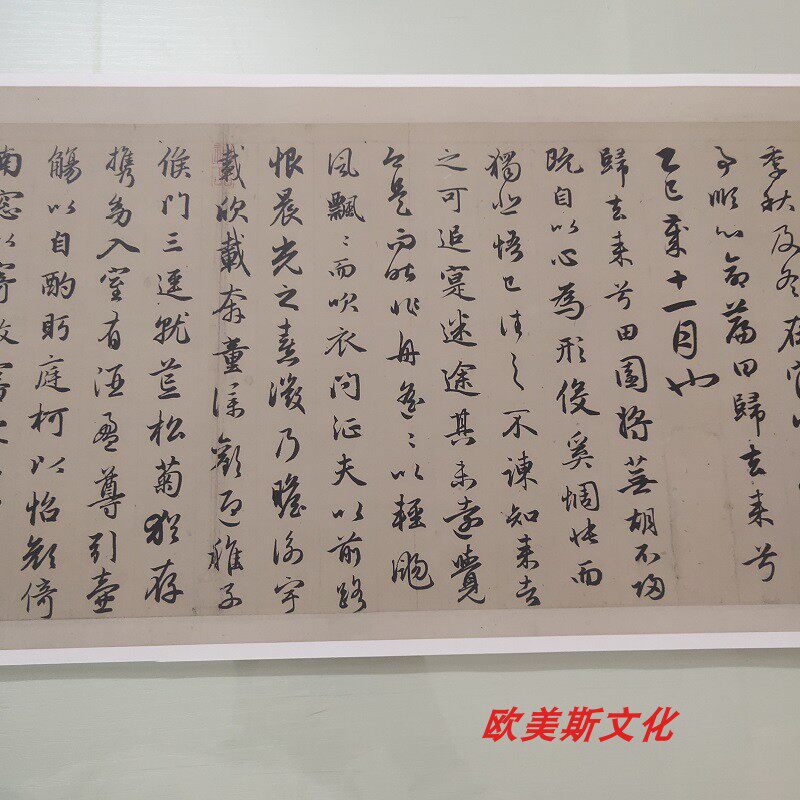 季秋及冬在官八
事順心命篇曰歸去来兮
乙巳歲十一月也
歸去来兮田園將蕪胡不歸
既自以心為形役奚惆悵而
獨悲悟已往之不諫知来者
之可追寔迷途其未遠覺
今是而昨非舟遙〻以輕颺
風飄〻而吹衣問征夫以前路
恨晨光之熹微乃瞻衡宇
載欣載奔童僕歡迎稚子
候門三逕就荒松菊猶存
携幼入室有酒盈尊引壺
觴以自酌眄庭柯以怡顏倚
南窓以寄
欧美斯文化